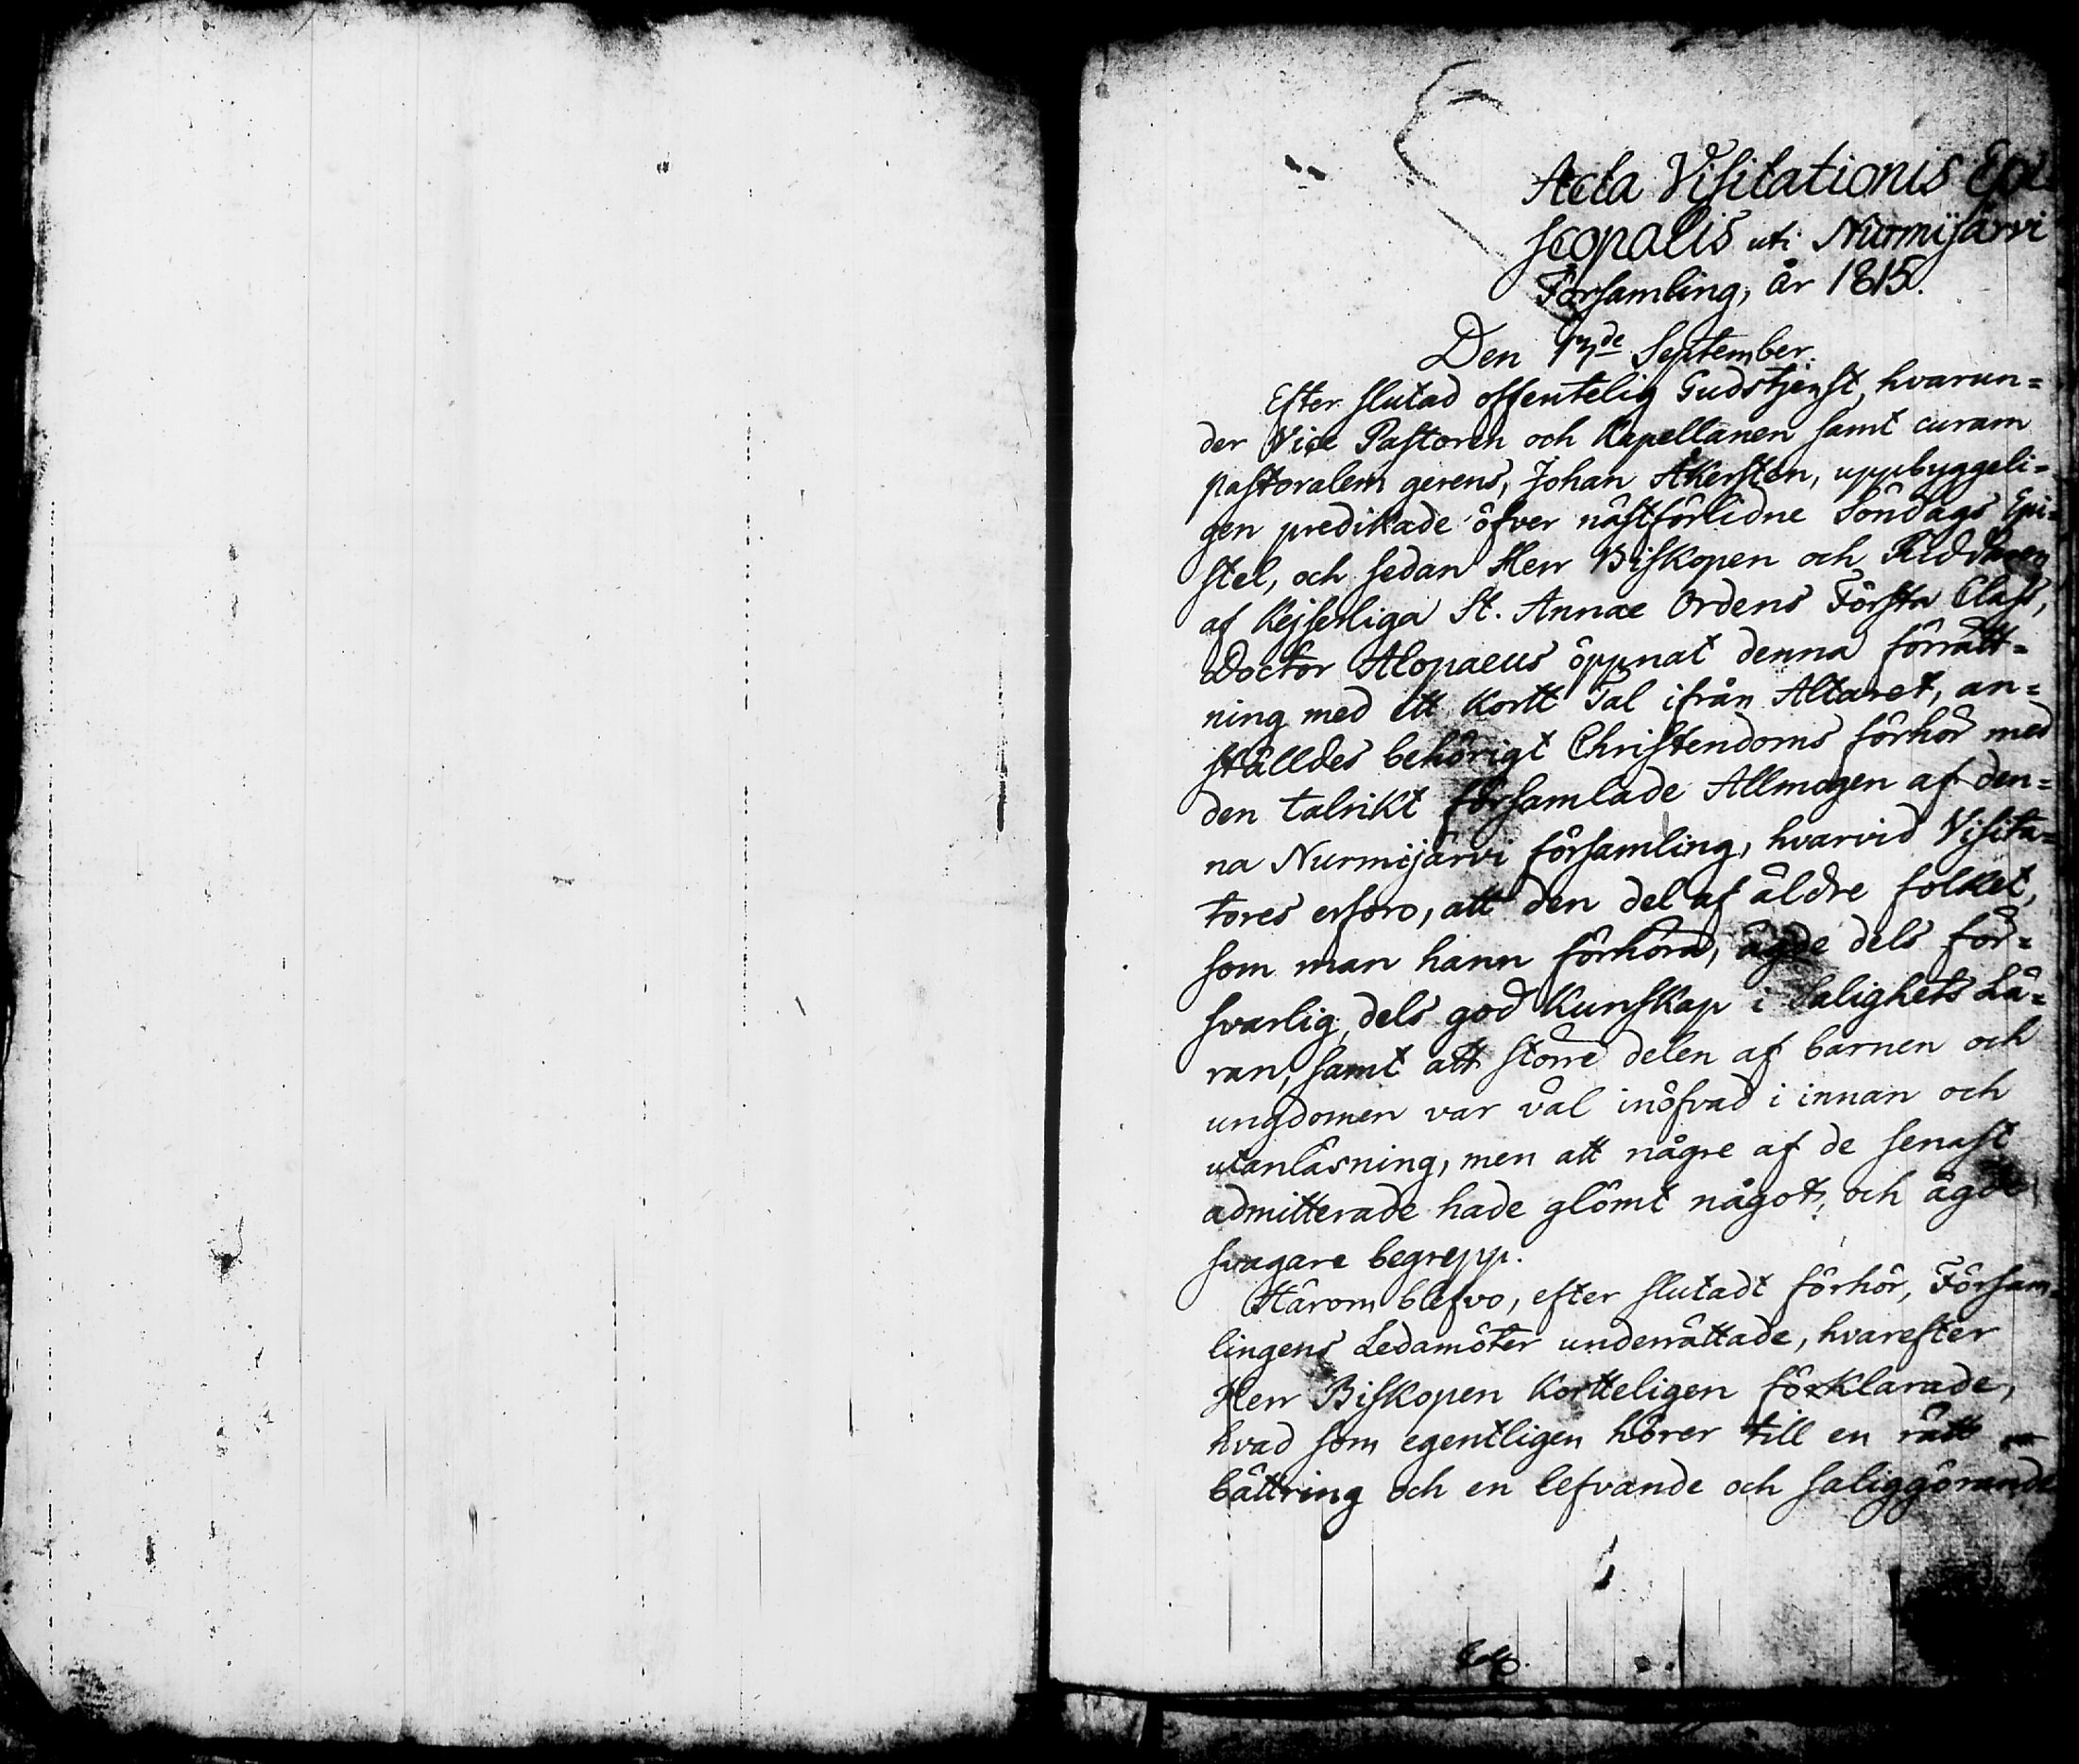 Acta Visitationis Epi
scopalis uti Nurmijärvi
Församling, år 1815.
Den 13de September.
Efter slutad offentelig Gudstjenst, hvarun=
der Vice Pastoren och Kapellanen samt curam
pastoralem gerens, Johan Åkersten, uppbyggeli=
gen predikade öfver nästförlidne Söndags Epi=
stel, och sedan Herr Biskopen och Riddaren
af Kejserliga St. Annae Ordens Första Class,
Doctor Alopaeus öppnat denna förrätt=
ning med ett kortt Tal ifrån Altaret, an=
ställdes behörigt Christendoms förhör med
den talrikt församlade Allmogen af den=
na Nurmijärvi församling, hvarvid Visita=
tores erforo, att den del af äldre folket,
som man hann förhöra, ägde dels för=
svarlig, dels god kunskap i Salighets Lä=
ran, samt att större delen af barnen och
ungdomen var väl inöfvad i innan och
utanläsning, men att någre af de senast
admitterade hade glömt något, och ägde
svagare begrepp.
Härom blefvo, efter slutadt förhör, Försam=
lingens Ledamöter underrättade, hvarefter
Herr Biskopen kortteligen förklarade,
hvad som egentligen hörer till en rätt
bättring och en lefvande och saliggörande